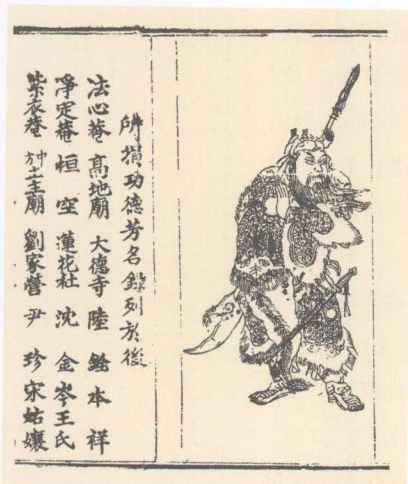 所損功德芳名錄列於後
法心菴 高地廟 大德寺 陸 銓 本 祥
淨定菴 恒 空 蓮花社 沈 金 岑王氏
紫衣菴 土主廟 劉家營 尹 珍 宋姑孃